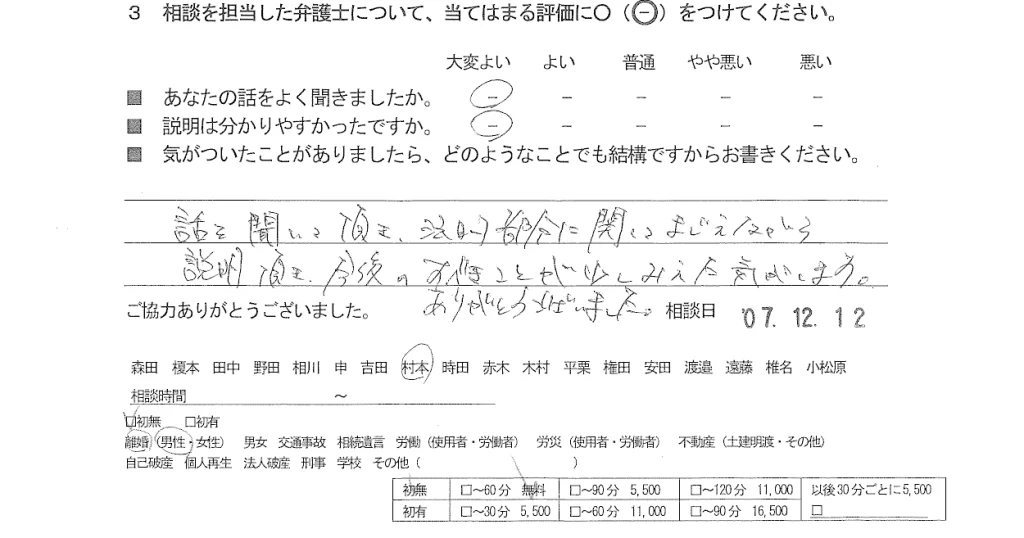 3 相談を担当した弁護士について、当てはまる評価に○（㊀）をつけてください。
大変よい よい 普通 やや悪い 悪い
■ あなたの話をよく聞きましたか。 － － － － －
■ 説明は分かりやすかったですか。 － － － － －
■ 気がついたことがありましたら、どのようなことでも結構ですからお書きください。
話を聞いて頂き、法的部分に関してまじえながら
説明頂き、今後のすべきことが少しみえた気がします。
ありがとうございました。
ご協力ありがとうございました。 相談日 '07.12.12
森田 榎本 田中 野田 相川 申 吉田 村本 時田 赤木 木村 平栗 権田 安田 渡邉 遠藤 椎名 小松原
相談時間 ～
□初無 □初有
離婚（男性・女性） 男女 交通事故 相続遺言 労働（使用者・労働者） 労災（使用者・労働者） 不動産（土建明渡・その他）
自己破産 個人再生 法人破産 刑事 学校 その他（ ）
初無 □～60分 無料 □～90分 5,500 □～120分 11,000 以後30分ごとに5,500
初有 □～30分 5,500 □～60分 11,000 □～90分 16,500 □